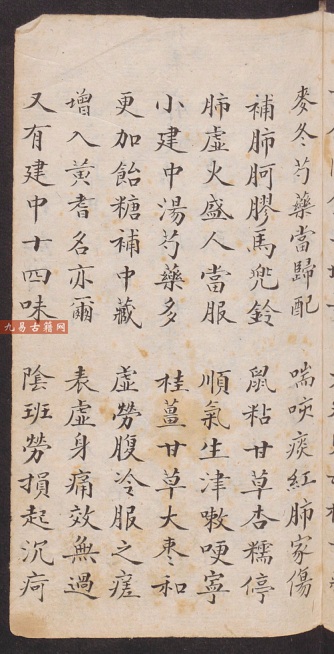 麥冬芍藥當歸配 喘咳痰紅肺家傷
補肺阿膠馬兜鈴 鼠粘甘草杏糯停
肺虛火盛人當服 順氣生津嗽哽寧
小建中湯芍藥多 桂薑甘草大棗和
更加飴糖補中藏 虛勞腹冷服之瘥
增入黃耆名亦爾 表虛身痛效無過
又有建中十四味 陰班勞損起沉疴
九易古籍网